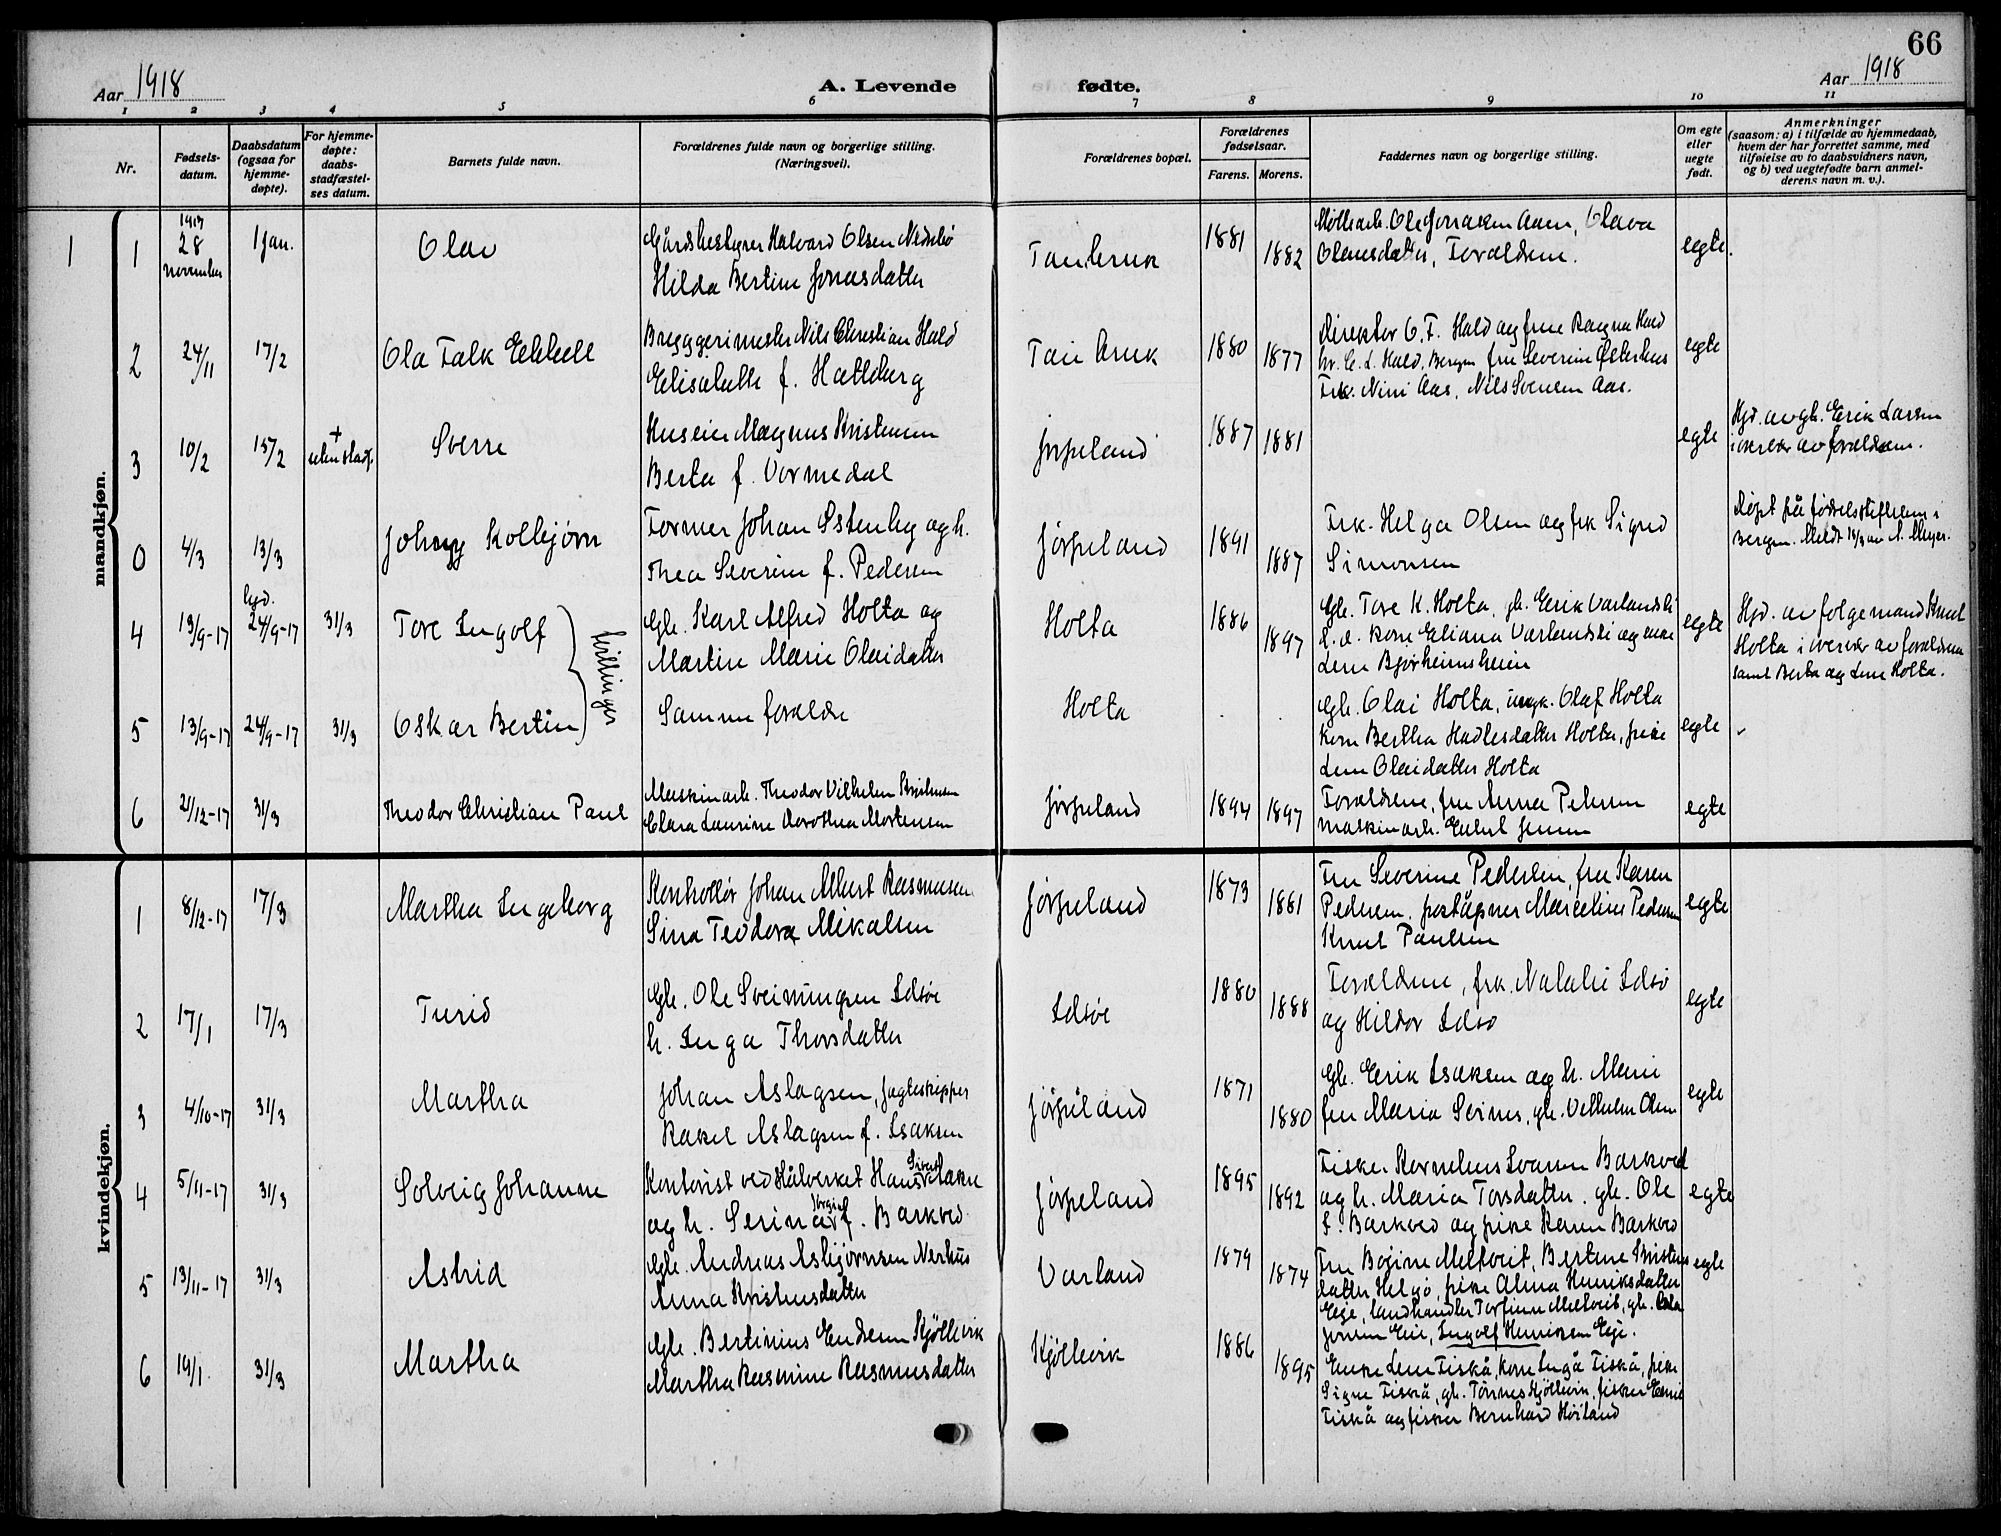 66
Aar 1918
A. Levende fødte.
Aar 1918
1 2 3 4 5 6 7 8 9 10 11
Nr.
Fødsels-
datum.
Daabsdatum
(ogsaa for
hjemme-
døpte).
For hjemme-
døpte:
daabs-
stadfæstel-
ses datum.
Barnets fulde navn.
Forældrenes fulde navn og borgerlige stilling.
(Næringsvei).
Forældrenes bopæl.
Forældrenes
fødselsaar.
Farens. Morens.
Faddernes navn og borgerlige stilling.
Om egte
eller
uegte
født.
Anmerkninger
(saasom: a) i tilfælde av hjemmedaab,
hvem der har forrettet samme, med
tilføielse av to daabsvidners navn,
og b) ved uegtefødte barn anmel-
derens navn m. v.).
mandkjøn.
1 1
1917
28
november
1 jan.
Olav
Gårdsbestyrer Halvard Olsen Nedrebø
Hilda Bertine Jonasdatter
Tau bruk
1881 1882
Møllearb. Ole Aaen, Olava
Olausdatter, Forældrene.
egte.
2 24/11 17/2
Ola Falk
Bryggerimester Nils Christian Hald
Elisabeth f. Hatleberg
Tau bruk
1880 1877
Direktør C. F. Hald og frue Ragna Hald
hr. C. L. Hald, Bergen fru Severine Østerhus
Frk. Nini Aas, Nils Svensen Aas.
egte
3 10/2 15/2
+
uten stadf.
Sverre
Huseier Magnus Kristensen
Berta f. Vormedal
Jørpeland
1887 1881
egte
Hjd. av gb. Erik Larsen
i overvær av forældrene.
0 4/3 13/3
Johnny Kolbjørn
Former Johan Østenby og h.
Thea Severine f. Pedersen
Jørpeland
1891 1887
Frk. Helga Olsen og frk Sigrid
Simonsen
Døpt på fødselsstiftelsen i
Bergen. Meldt av N. Meyer.
4 13/9-17
hjd.
24/9-17 31/3
Tore Ingolf
tvillinger
Gb. Karl Alfred Holta og
Martine Marie Olaidatter
Holta
1886 1897
Gb. Tore K. Holta, gb. Erik Varlandsli
kone Eliana Varlandsli og enke
Lene Bjørheimsheien
egte
Hjd. av følgemand Knut
Holta i overvær av forældrene
samt Berta og Lene Holta.
5 13/9-17 24/9-17 31/3
Oskar Bertin
Samme forældre
Holta
Gb. Olai Holta, ungk. Olaf Holta
kone Bertha Hadlesdatter Holta, pike
Lene Olaidatter Holta
egte
6 21/12-17 31/3
Theodor Christian Paul
Maskinarb. Theodor Vilhelm Kristensen
Clara Laurine Dorothea Mortensen
Jørpeland
1894 1897
Forældrene, fru Anna Petersen
maskinarb. Jensen
egte
kvindekjøn.
1 8/12-17 17/3
Martha Ingeborg
Kontrollør Johan Albert Rasmussen
Sina Teodora Mikalsen
Jørpeland
1873 1881
Fru Severine Pedersen, fru Karen
Pedersen, poståpner Marcelius Pedersen
Knut Paulsen
egte
2 17/1 17/3
Turid
Gb. Ole Sveinungsen Idsøe
h. Inga Thorsdatter
Idsøe
1880 1888
Forældrene, frk. Natalie Idsø
og Hildor Idsø
egte
3 4/10-17 31/3
Martha
Johan Aslagsen, jagteskipper
Rakel Aslagsen f. Isaksen
Jørpeland
1871 1880
Gb. Erik Isaksen og h. Marie
fru Maria Svines, gb. Velhelm Olsen
egte
4 5/11-17 31/3
Solveig Johanne
Kontorist ved Stålverket Hans Sivert
og h. Serina Jorgine f. Barkved
Jørpeland
1895 1892
Fisker Kornelius Ivarsen Barkved
og h. Maria Torsdatter. gb. Ole
I. Barkved og pike Karen Barkved
egte
5 13/11-17 31/3
Astrid
Gb. Andreas Asbjørnsen Nerhus
Anna Kristensdatter
Varland
1879 1874
Fru Bojine Meltveit, Bertine Kristens
datter Helgø, pike Alma Henriksdatter
Eeje, landhandler Torfinn Meltveit, gb.
Jonsen Eeie, Ingolf Henriksen Eeje.
egte
6 19/1 31/3
Martha
Gb. Bertinius Endresen Kjøllevik
Martha Rasmine Rasmusdatter
Kjøllevik
1886 1895
Enke Lene Fiskå, kone Inga Fiskå, pike
Signe Fiskå, gb. Tønnes Kjøllevik, fisker
Fiskå og fisker Bernhard Høiland